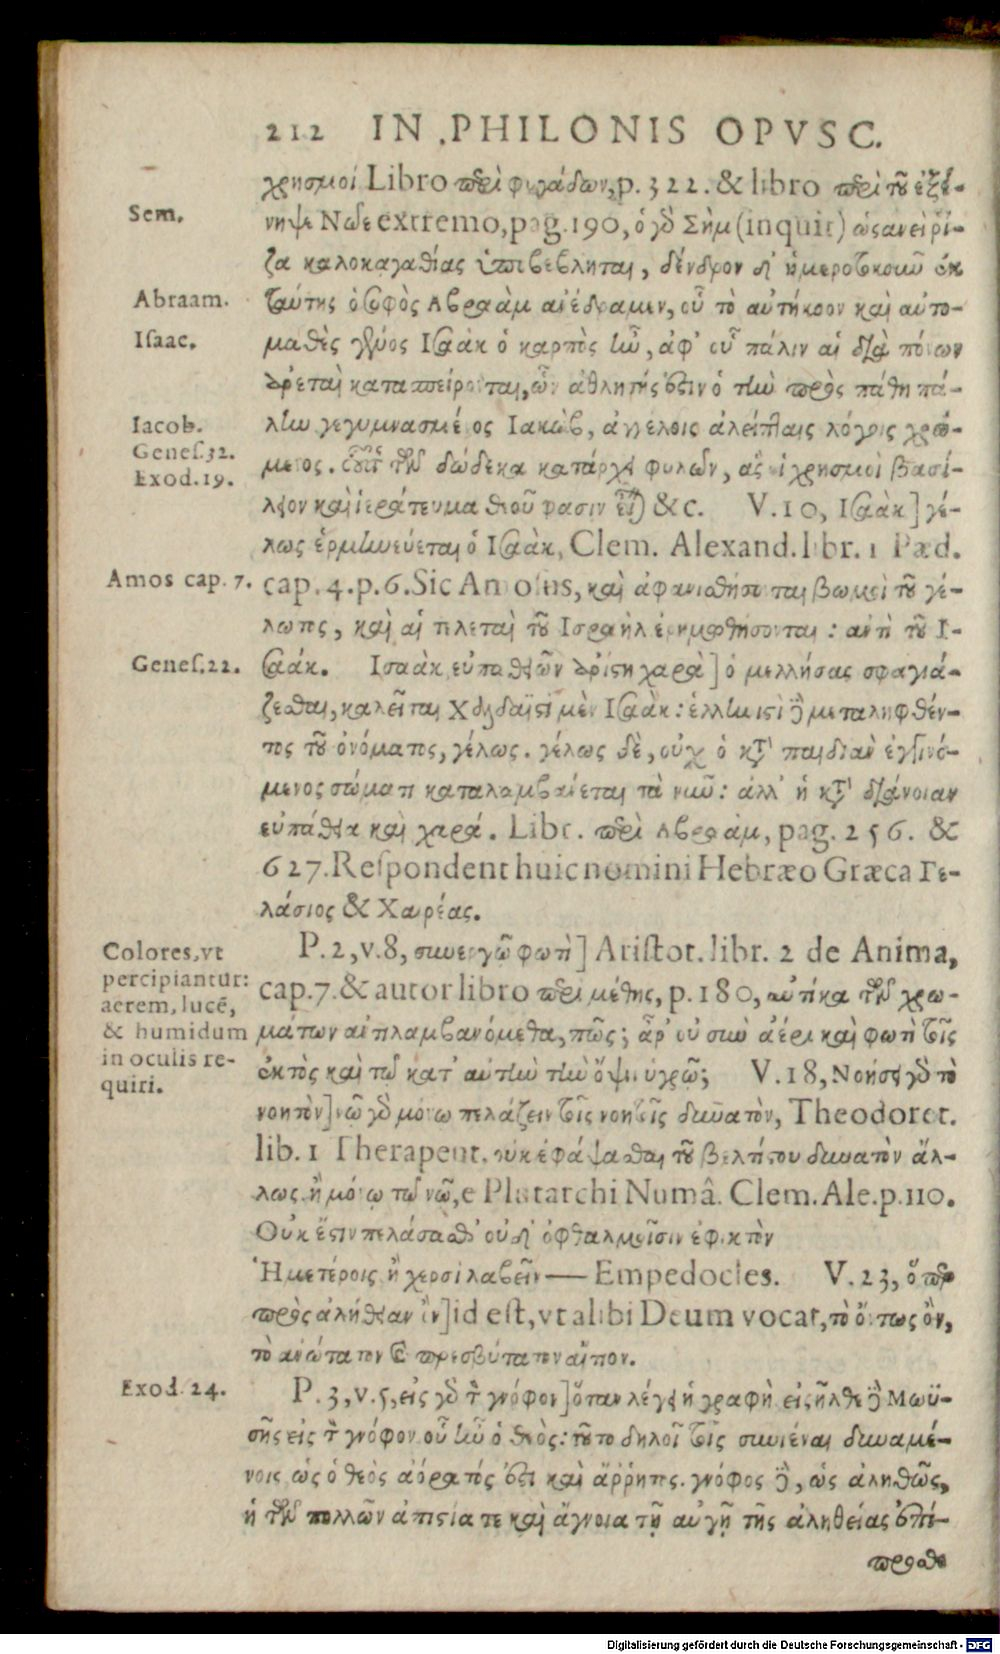 212 IN PHILONIS OPVSC.
χρησμοί Libro περὶ φυγάδων, p. 322. & libro περὶ τοῦ ἐξέ-
Sem.
νηψε Νῶε extremo, pag. 190, ὁ γὰρ Σὴμ (inquit) ὡσανεὶ ῥί-
ζα καλοκαγαθίας ὑποβέβληται, δένδρον δ' ἡμεροτοκοῦν ἐκ
Abraam.
ταύτης ὁ σοφὸς Αβραὰμ ἀνέδραμεν, οὗ τὸ αὐτήκοον καὶ αὐτο-
Isaac.
μαθὲς γένος Ισαὰκ ὁ καρπὸς ἦν, ἀφ' οὗ πάλιν αἱ διὰ πόνων
ἀρεταὶ κατασπείρονται, ὧν ἀθλητής ἐστιν ὁ τὴν πρὸς πάθη πά-
Iacob.
λην γεγυμνασμένος Ιακὼβ, ἀγγέλοις ἀλείπταις λόγοις χρώ-
Genes. 32.
μενος. οὗτος τῶν δώδεκα κατάρχει φυλῶν, ἅς οἱ χρησμοὶ βασί-
Exod. 19.
λειον καὶ ἱεράτευμα θεοῦ φασιν εἶναι) &c. V. 10, Ισαὰκ] γέ-
λως ἑρμηνεύεται ὁ Ισαὰκ, Clem. Alexand. libr. 1 Pæd.
Amos cap. 7.
cap. 4. p. 6. Sic Amosus, καὶ ἀφανισθήσονται βωμοὶ τοῦ γέ-
λωτος, καὶ αἱ τελεταὶ τοῦ Ισραὴλ ἐρημωθήσονται: ἀντὶ τοῦ Ι-
Genes. 22.
σαάκ. Ισαὰκ εὐπαθειῶν ἀρίστη χαρὰ] ὁ μελλήσας σφαγιά-
ζεσθαι, καλεῖται Χαλδαϊστὶ μὲν Ισαὰκ: ἑλληνιστὶ δὲ μεταληφθέν-
τος τοῦ ὀνόματος, γέλως. γέλως δὲ, οὐχ ὁ κατὰ παιδιὰν ἐγγινό-
μενος σώματι καταλαμβάνεται τὰ νῦν: ἀλλ' ἡ κατὰ διάνοιαν
εὐπάθεια καὶ χαρά. Libr. περὶ Αβραάμ, pag. 256. &
627. Respondent huic nomini Hebræo Græca Γε-
λάσιος & Χαιρέας.
Colores, vt percipiantur: aerem, lucē, & humidum in oculis requiri.
P. 2, v. 8, συνεργῷ φωτὶ] Aristot. libr. 2 de Anima,
cap. 7. & autor libro περὶ μέθης, p. 180, αὐτίκα τῶν χρω-
μάτων ἀντιλαμβανόμεθα, πῶς; ἆρ' οὐ σὺν ἀέρι καὶ φωτὶ τοῖς
ἐκτὸς καὶ τῷ κατ' αὐτὴν τὴν ὄψιν ὑγρῷ; V. 18, Νοήσει γὰρ τὸ
νοητὸν] νῷ γὰρ μόνῳ πελάζειν τοῖς νοητοῖς δυνατὸν, Theodoret.
lib. 1 Therapeut. οὐκ ἐφάψασθαι τοῦ βελτίστου δυνατὸν ἄλ-
λως ἢ μόνῳ τῷ νῷ, e Plutarchi Numâ. Clem. Ale. p. 110.
Οὐκ ἔστιν πελάσασθ' οὐδ' ὀφθαλμοῖσιν ἐφικτὸν
Ἡμετέροις ἢ χερσὶ λαβεῖν — Empedocles. V. 23, ὅπερ
πρὸς ἀλήθειαν ὂν] id est, vt alibi Deum vocat, τὸ ὄντως ὂν,
τὸ ἀνώτατον καὶ πρεσβύτατον αἴτιον.
Exod. 24.
P. 3, v. 5, εἰς γὰρ τὸν γνόφον] ὅταν λέγει ἡ γραφὴ εἰσῆλθε δὲ Μωϋ-
σῆς εἰς τὸν γνόφον οὗ ἦν ὁ θεὸς: τοῦτο δηλοῖ τοῖς συνιέναι δυναμέ-
νοις ὡς ὁ θεὸς ἀόρατός ἐστι καὶ ἄῤῥητος. γνόφος δὲ, ὡς ἀληθῶς,
ἡ τῶν πολλῶν ἀπιστία τε καὶ ἄγνοια τῇ αὐγῇ τῆς ἀληθείας ἐπί-
προσθε
Digitalisierung gefördert durch die Deutsche Forschungsgemeinschaft - DFG